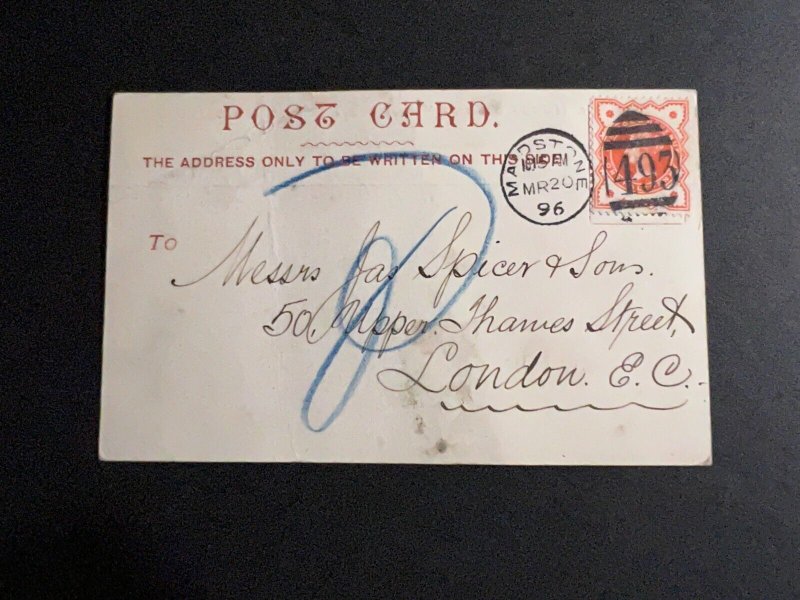 POST CARD.
THE ADDRESS ONLY TO BE WRITTEN ON THIS SIDE.
MAIDSTONE
MR 20
96
493
To
Messrs Jas Spicer & Sons.
50, Upper Thames Street,
London. E. C.